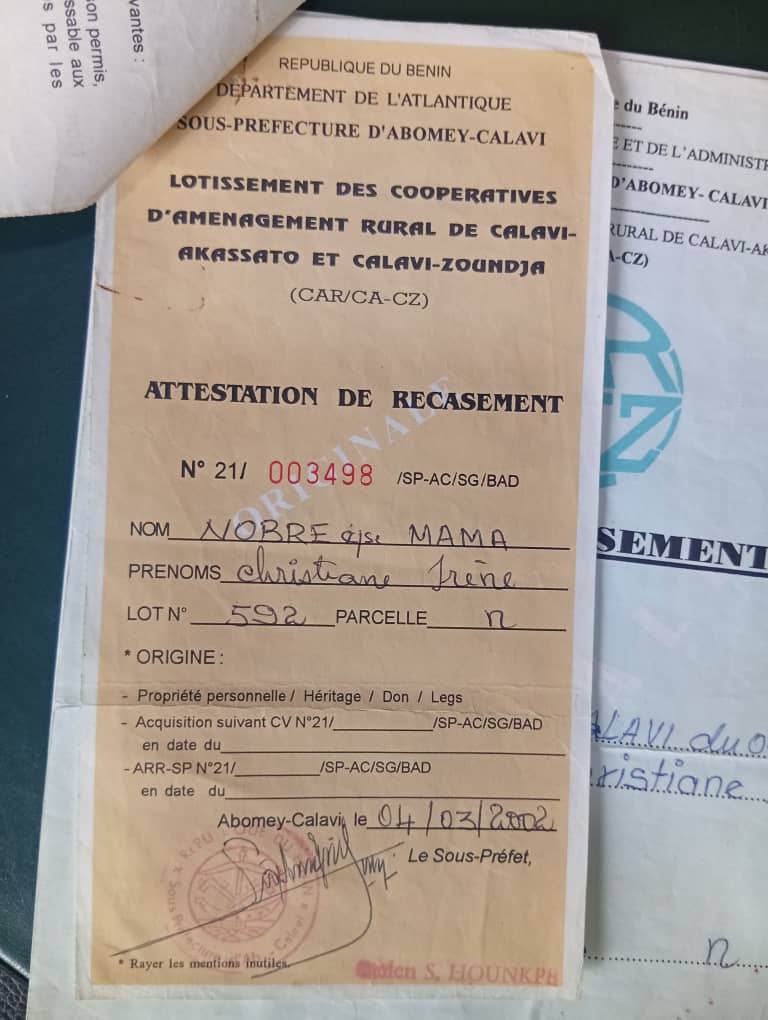 vantes :
on permis,
ssable aux
s par les
REPUBLIQUE DU BENIN
DEPARTEMENT DE L'ATLANTIQUE
SOUS-PREFECTURE D'ABOMEY-CALAVI
LOTISSEMENT DES COOPERATIVES
D'AMENAGEMENT RURAL DE CALAVI-
AKASSATO ET CALAVI-ZOUNDJA
(CAR/CA-CZ)
ATTESTATION DE RECASEMENT
ORIGINALE
N° 21/ 003498 /SP-AC/SG/BAD
NOM NOBRE épse MAMA
PRENOMS Christiane Irène
LOT N° 592 PARCELLE n
* ORIGINE :
- Propriété personnelle / Héritage / Don / Legs
- Acquisition suivant CV N°21/ /SP-AC/SG/BAD
en date du
- ARR-SP N°21/ /SP-AC/SG/BAD
en date du
Abomey-Calavi, le 04/03/2002
Le Sous-Préfet,
* Rayer les mentions inutiles.
S. HOUNKPE
e du Bénin
E ET DE L'ADMINISTR
D'ABOMEY- CALAVI
RURAL DE CALAVI-AK
A-CZ)
SEMENT
ALAVI du 0
ristiane
n